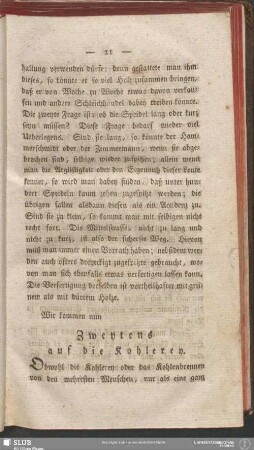 — 21 —
haltung verwenden dürfe: denn gestattete man ihm
dieses, so könnte er so viel Holz zusammen bringen,
daß er von Woche zu Woche etwas davon verkau-
fen und andere Schleichhändel dabey treiben könnte.
Die zweyte Frage ist: ob die Speideln lang oder kurz
seyn müssen? Diese Frage bedarf wieder viel
Ueberlegens. Sind sie lang, so könnte der Ham-
merschmidt oder der Zimmermann, wenn sie abge-
brochen sind, selbige wieder zuspitzen; allein wenn
man die Arglistigkeit oder den Eigennutz dieser Leute
kennet, so wird man dabey finden, daß unter hun-
dert Speideln kaum zehen zugespitzt werden; die
übrigen fallen alsdann diesen als ein Accidenz zu.
Sind sie zu klein, so kommt man mit selbigen nicht
recht fort. Die Mittelstrasse, nicht zu lang und
nicht zu kurz, ist also der sicherste Weg. Hievon
muß man immer einen Vorrath haben; ausserdem wer-
den auch öfters dreyeckigt zugespitzte gebraucht, wo-
von man sich ebenfalls etwas verfertigen lassen kann.
Die Verfertigung derselben ist vortheilhafter mit grü-
nem als mit dürrem Holze.
Wir kommen nun
Zweytens
auf die Kohlerey.
Obwohl die Kohlerey oder das Kohlenbrennen
von den mehrsten Menschen, nur als eine ganz
SLUB